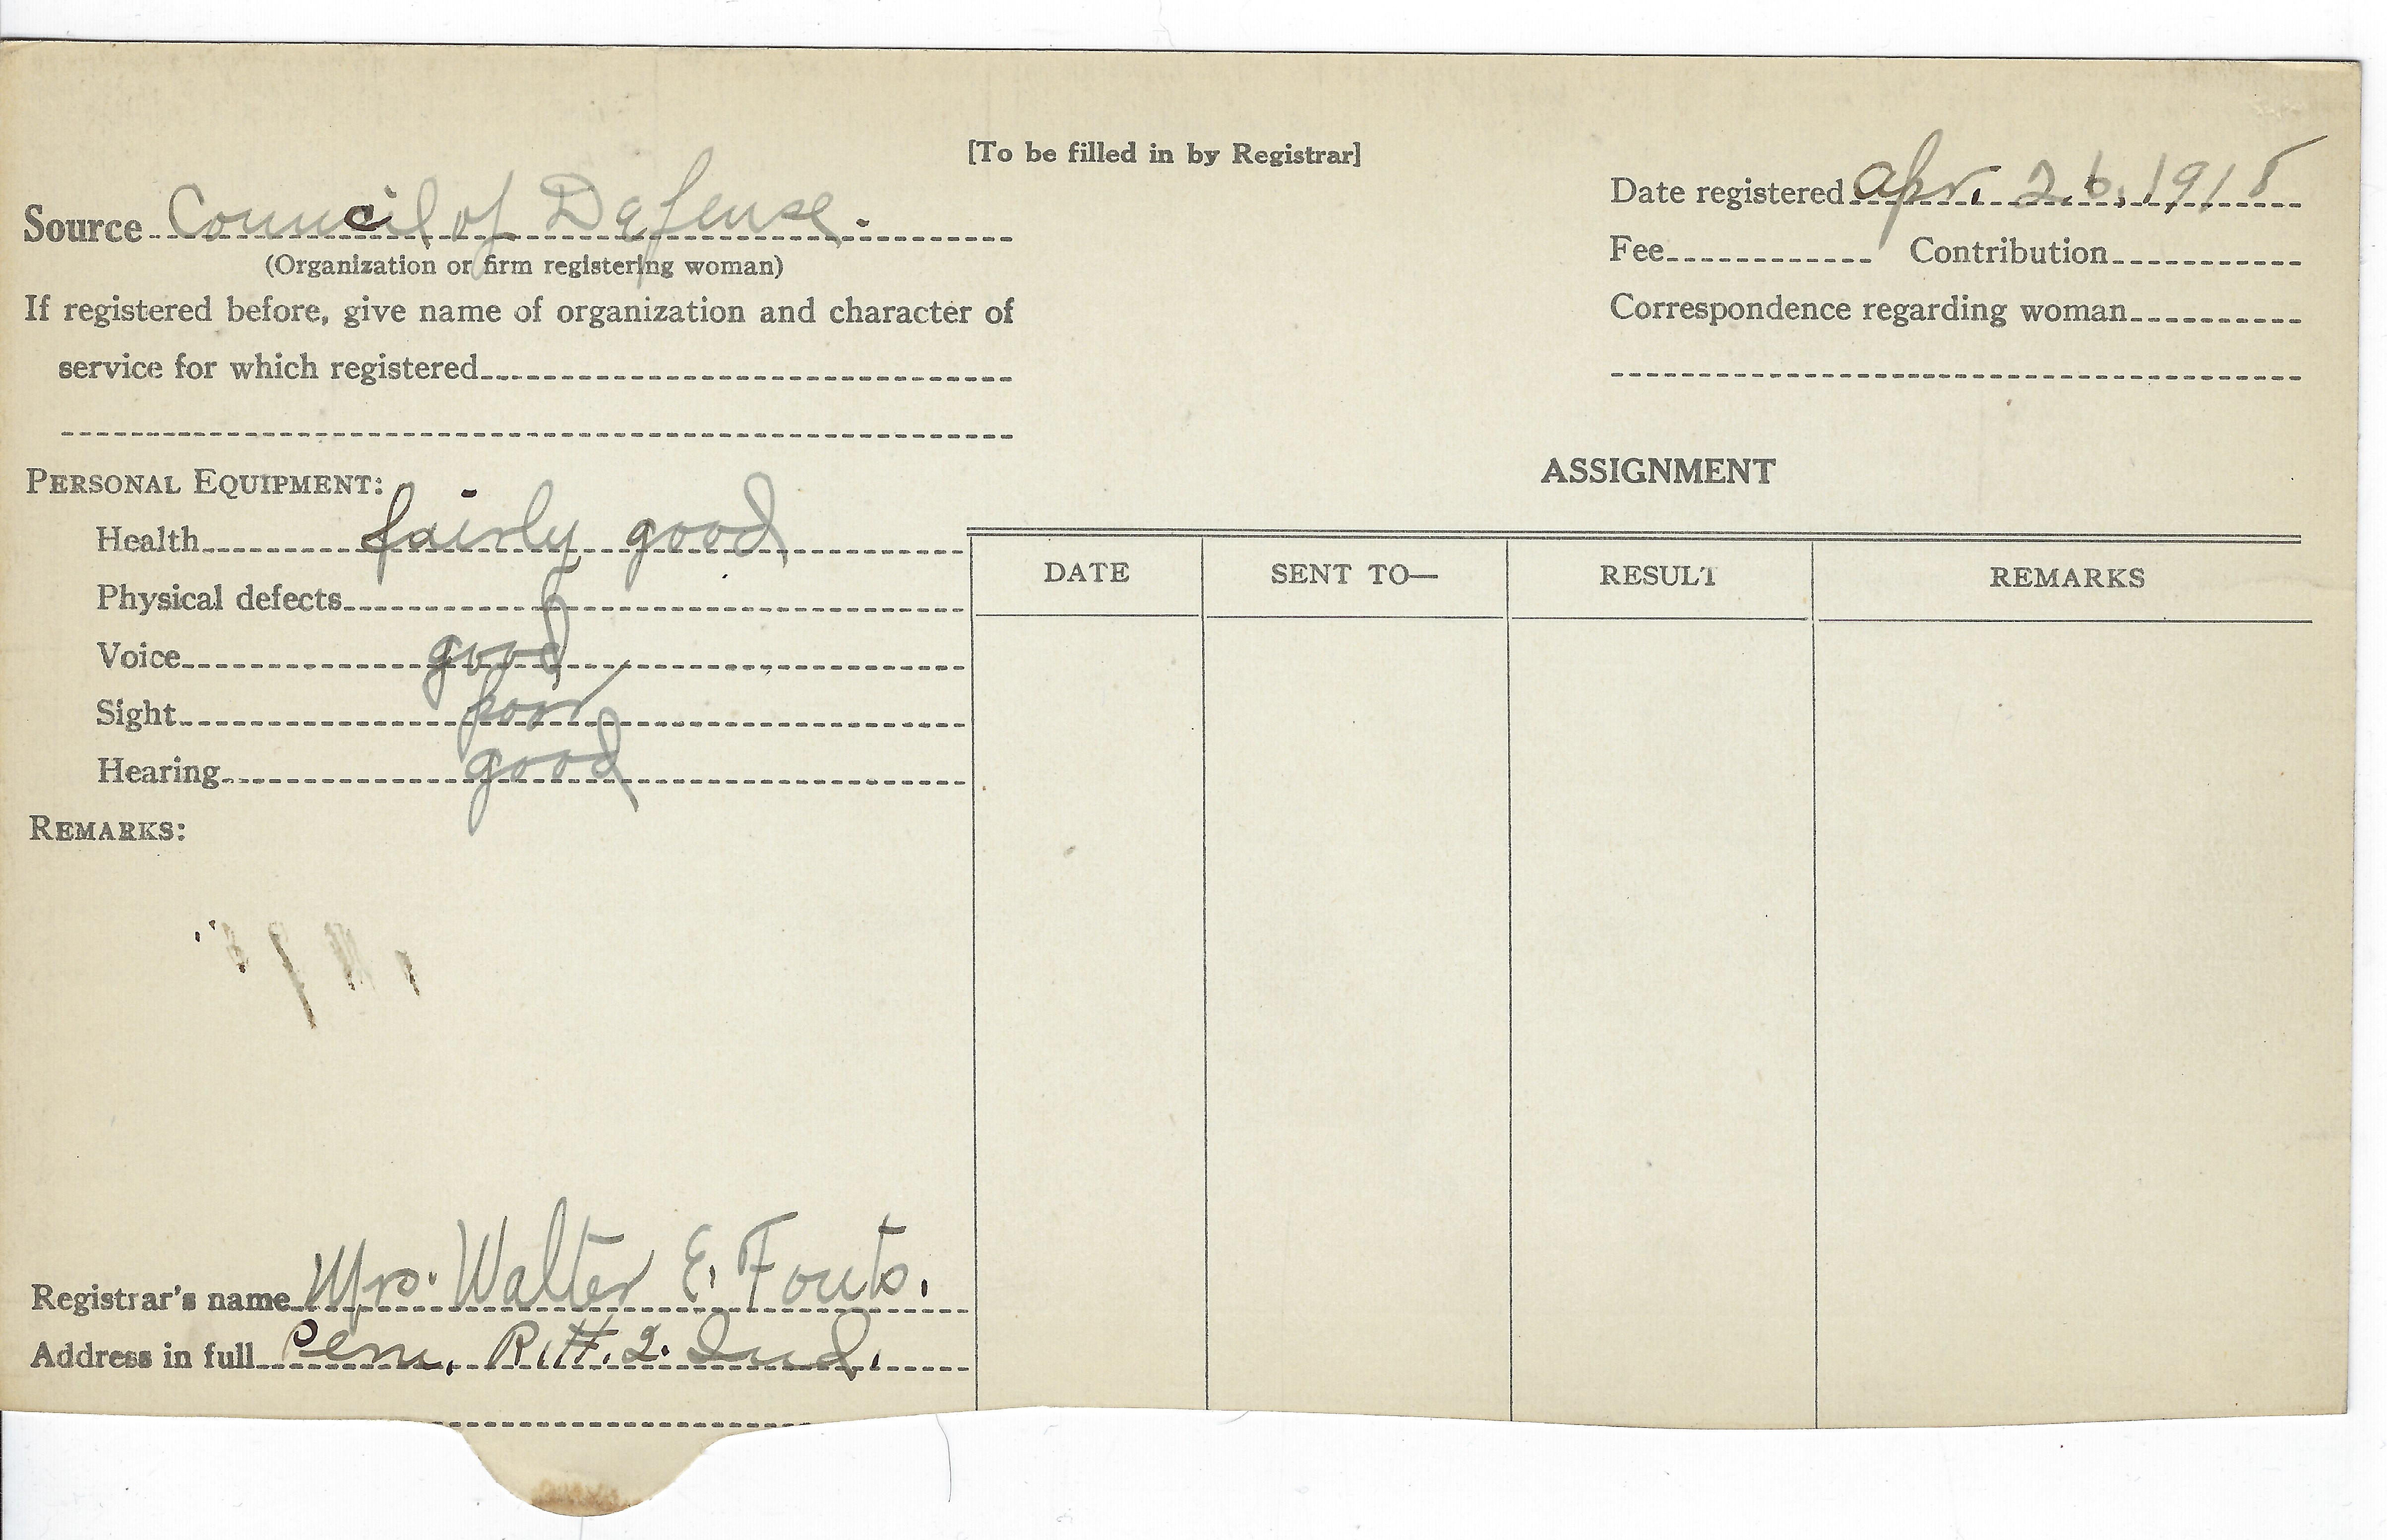 [To be filled in by Registrar]
Source Council of Defense.
(Organization or firm registering woman)
If registered before, give name of organization and character of
service for which registered
Date registered Apr. 26, 1918
Fee Contribution
Correspondence regarding woman
PERSONAL EQUIPMENT:
Health fairly good
Physical defects
Voice good
Sight poor
Hearing good
REMARKS:
Registrar's name Mrs. Walter E. Fouts.
Address in full Peru, R.#.2. Ind.
ASSIGNMENT
DATE SENT TO— RESULT REMARKS